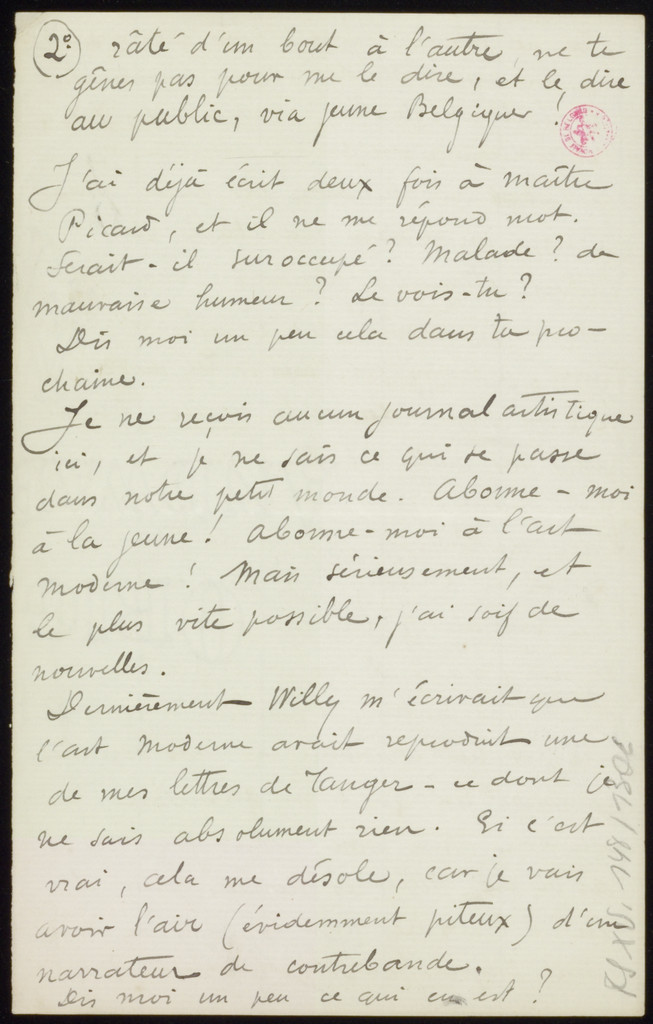 2º râté d'un bout à l'autre, ne te
gênes pas pour me le dire, et le dire
au public, via jeune Belgique !
J'ai déjà écrit deux fois à maître
Picard, et il ne me répond mot.
Serait-il suroccupé ? Malade ? de
mauvaise humeur ? Le vois-tu ?
Dis moi un peu cela dans ta pro-
chaine.
Je ne reçois aucun journal artistique
ici, et je ne sais ce qui se passe
dans notre petit monde. Abonne-moi
à la jeune ! Abonne-moi à l'art
moderne ! Mais sérieusement, et
le plus vite possible, j'ai soif de
nouvelles.
Dernièrement Willy m'écrivait que
l'art moderne avait reproduit une
de mes lettres de Tanger - ce dont je
ne sais absolument rien. Si c'est
vrai, cela me désole, car je vais
avoir l'air (évidemment piteux) d'un
narrateur de contrebande.
Dis moi un peu ce qui en est ?